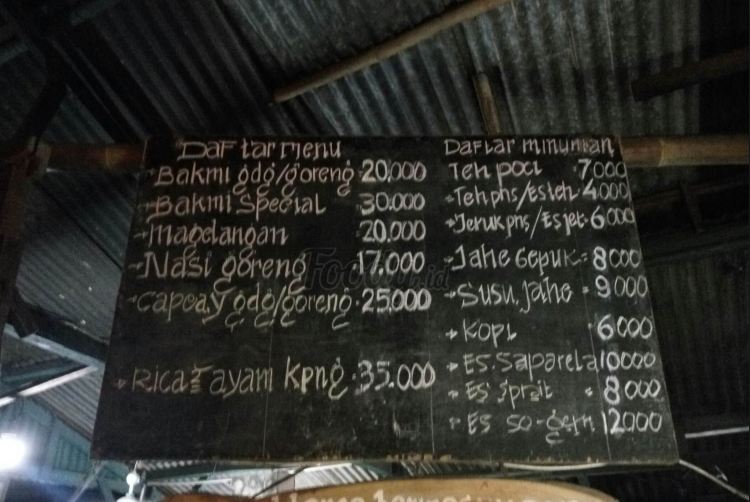 Daftar Menu
- Bakmi gdg/goreng 20.000
- Bakmi Special 30.000
- Magelangan 20.000
- Nasi goreng 17.000
- Capcay gdg/goreng 25.000
- Rica2 ayam kpng 35.000
Daftar minuman
Teh poci 7000
- Teh pns/Es teh 4000
- Jeruk pns/Es jek 6000
- Jahe Gepuk = 8000
- Susu Jahe = 9000
- Kopi 6000
- Es. Saparela 10000
- Es Sprit = 8000
- Es So-gem 12000